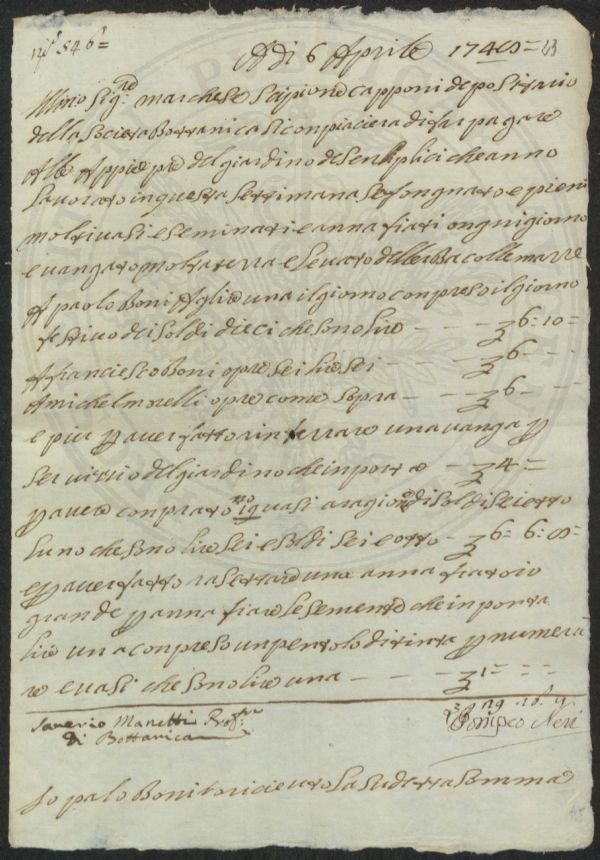 Nº 546=
A di 6 Aprile 1748=
23
Illmo Sig.re marchese Scipione capponi depositario
della Societa Bottanica si conpiacera di far pagare
Alle Appie pre del giardino de Senplici che anno
Lavorato in questa settimana se fongnato e pieni
molti vasi e seminari e anna fiari ongni giorno
e vangato molta terra e levato delle Bacolle marre
A paolo Boni A lire una il giorno conpreso il giorno
festivo dei soldi dieci che sono lire - - - 6=10=
A franciesco Boni opre sei lire sei - - - 6 - - -
A michel morelli opre come sopra - - - 6 - - -
e piu p aver fatto rinferrare una vanga p
servitio del giardino che inporta - - 4=
p avere conprato no 19 vasi a ragione di soldi sei e otto
luno che sono lire sei e soldi sei e otto - 6=6=8=
e p aver fatto rasettare uno anna fiatoio
grande p anna fiare le semente che inporta
lire una conpreso un pentolo di tinta p numera
re e vasi che sono lire una - - - 1= = =
Saverio Manetti Prof.re
di Bottanica
Pompeo Neri
Io palo Boni o ricieuto la sudetta somma